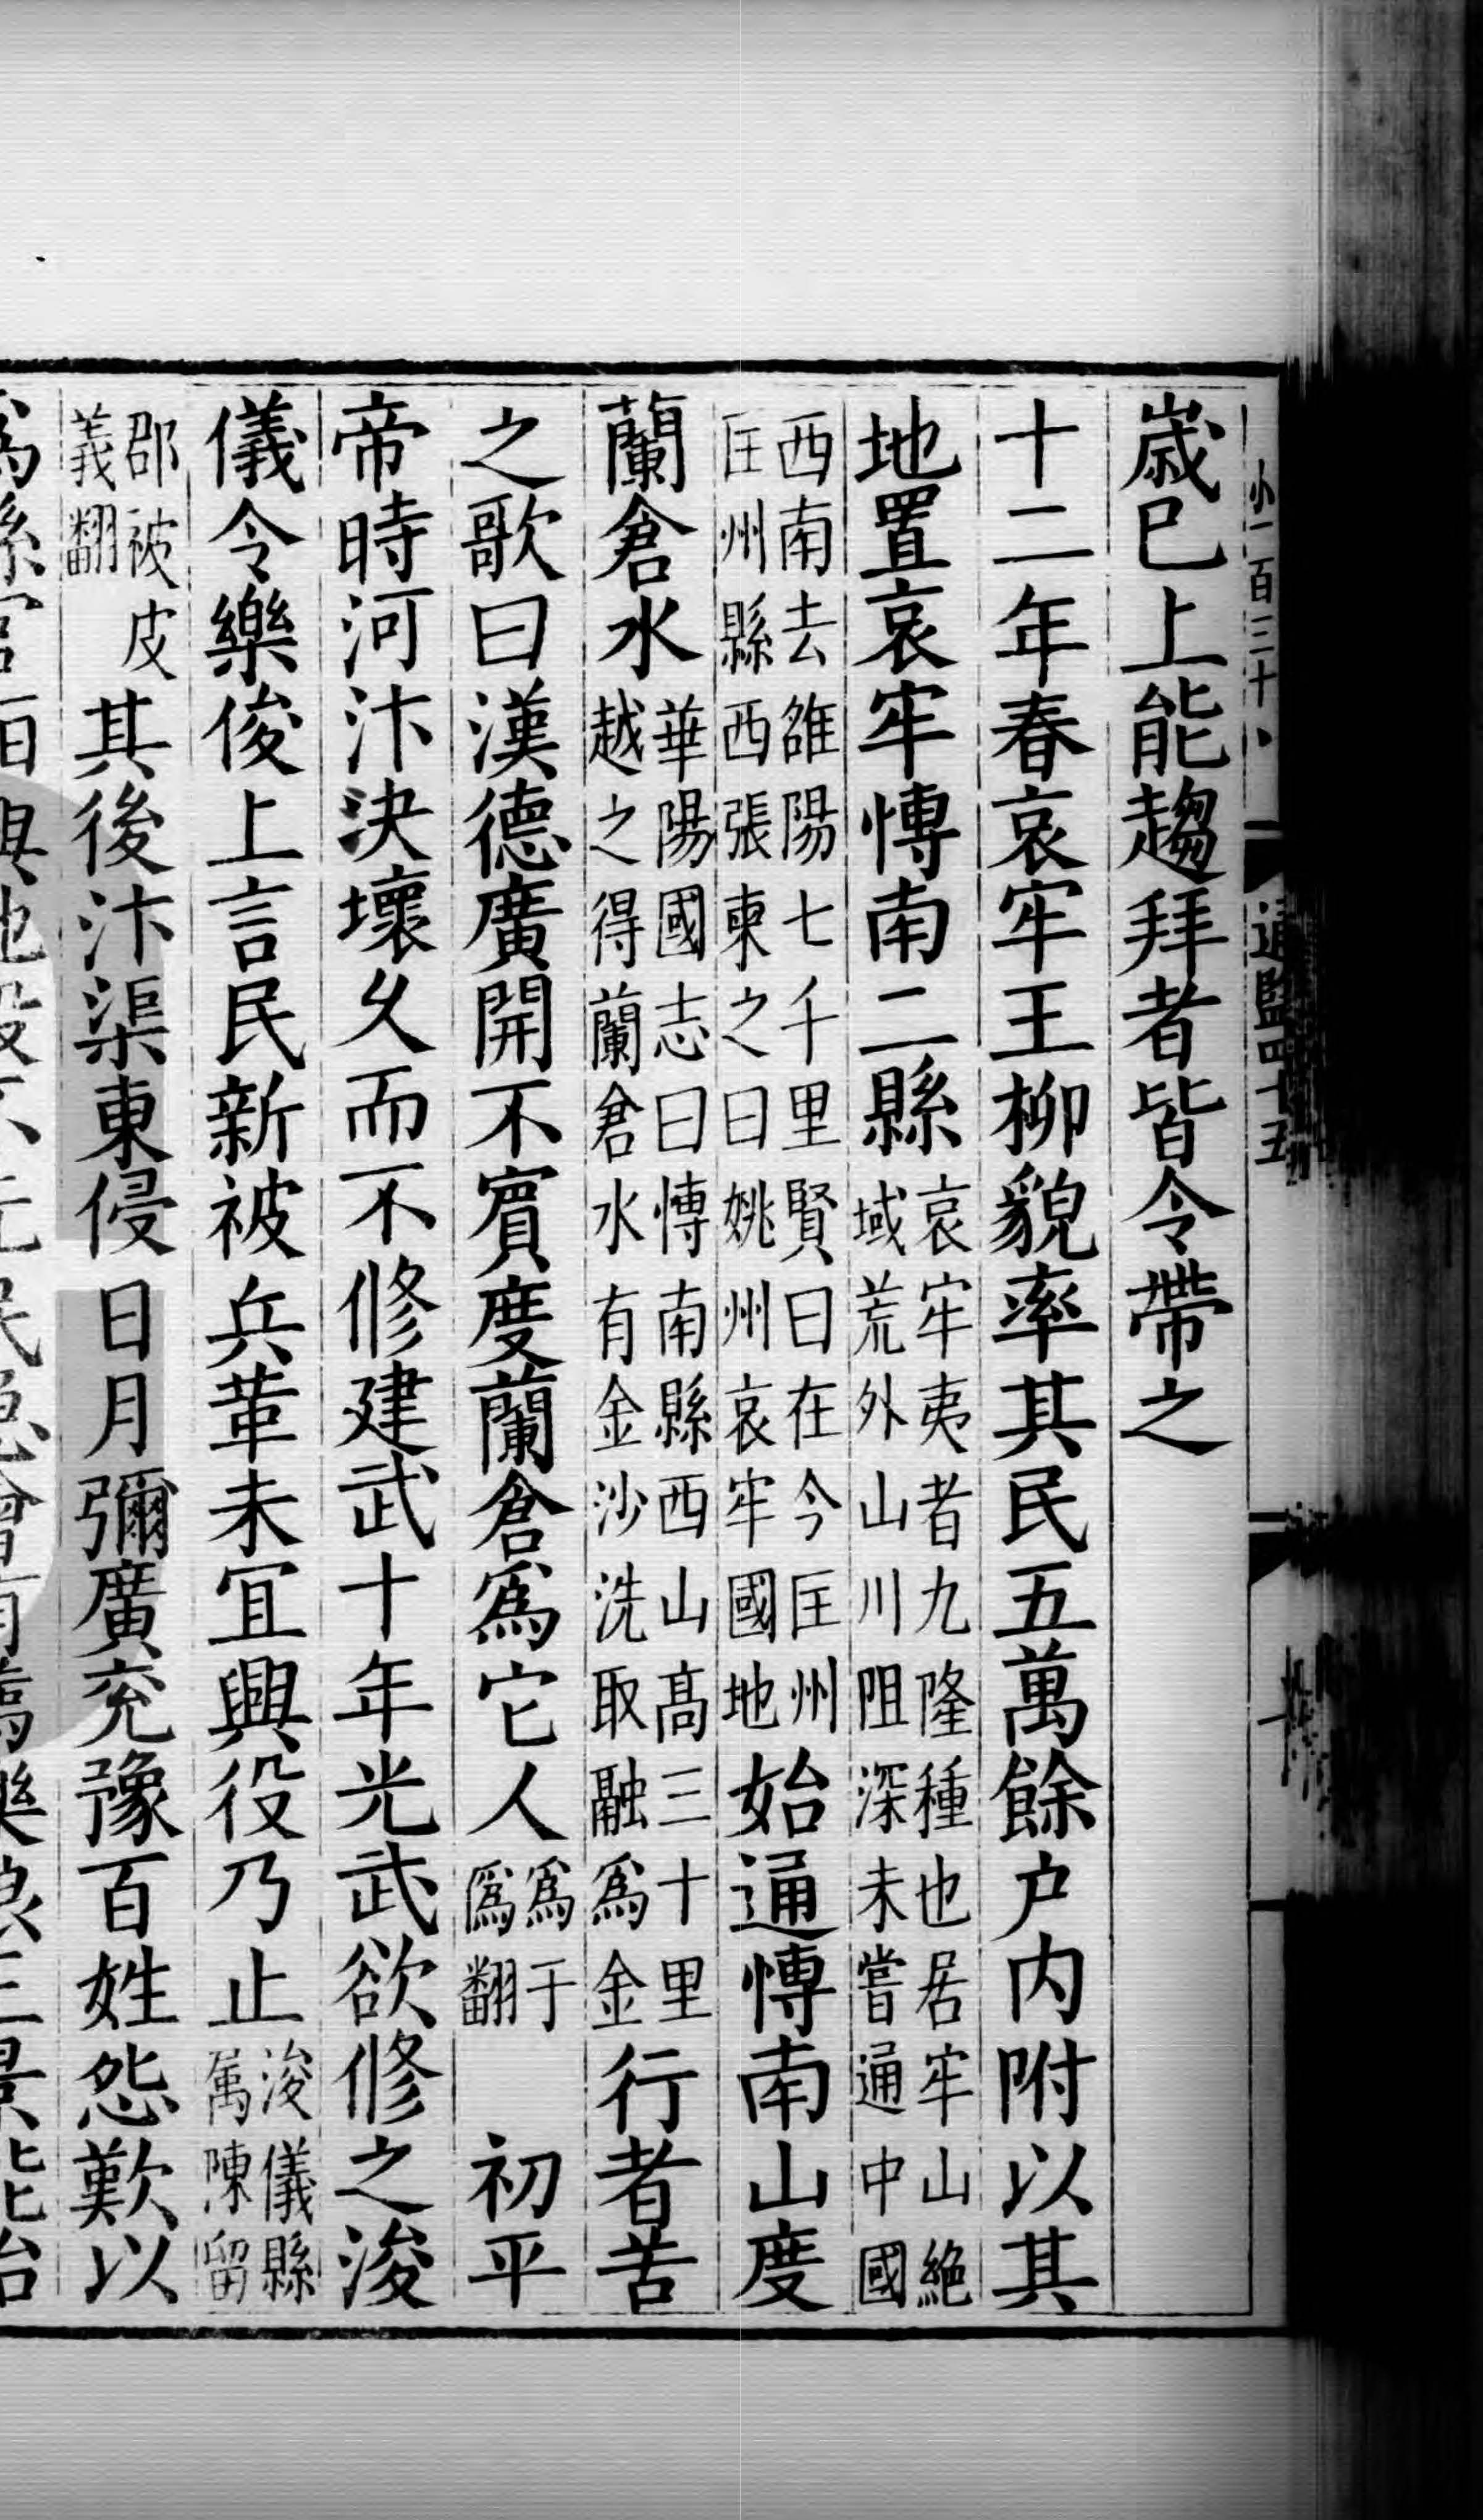 小一百三十
通鑑四十五
歲巳上能趨拜者皆令帶之
十二年春哀牢王柳貌率其民五萬餘户内附以其
地置哀牢愽南二縣哀牢夷者九隆種也居牢山絶域荒外山川阻深未嘗通中國
西南去雒陽七千里賢曰在今匡州匡州縣西張柬之曰姚州哀牢國地始通愽南山度
蘭倉水華陽國志曰愽南縣西山高三十里越之得蘭倉水有金沙洗取融爲金行者苦
之歌曰漢德廣開不賔度蘭倉爲它人爲于僞翻初平
帝時河汴決壞久而不修建武十年光武欲修之浚
儀令樂俊上言民新被兵革未宜興役乃止浚儀縣属陳留
郡被皮義翻其後汴渠東侵日月彌廣兖豫百姓怨歎以